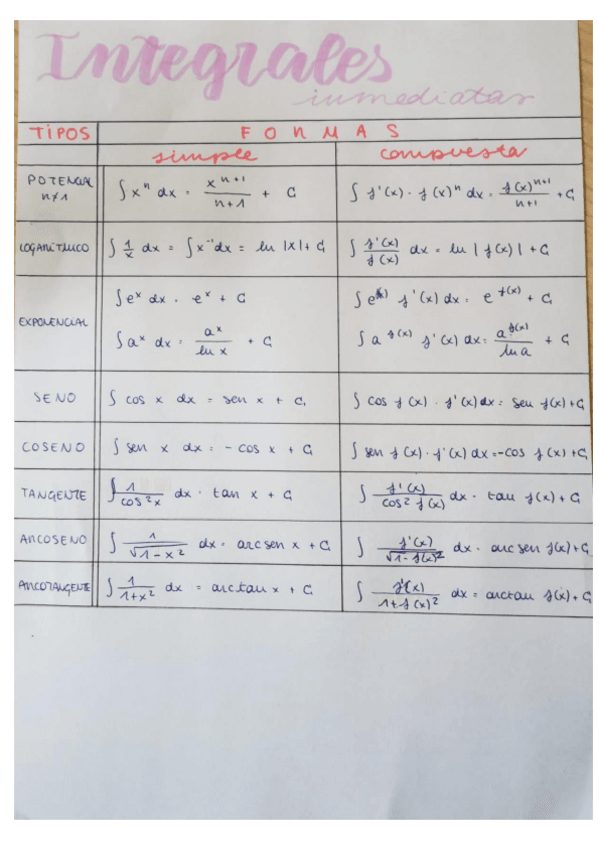 Integrales
inmediatas
TIPOS FORMAS
simple compuesta
POTENCIAL n≠1 ∫ x^n dx = x^(n+1)/(n+1) + C ∫ f'(x) · f(x)^n dx = f(x)^(n+1)/(n+1) + C
LOGARÍTMICO ∫ 1/x dx = ∫ x^-1 dx = ln |x| + C ∫ f'(x)/f(x) dx = ln | f(x) | + C
EXPONENCIAL ∫ e^x dx = e^x + C ∫ e^f(x) f'(x) dx = e^f(x) + C
∫ a^x dx = a^x/ln x + C ∫ a^f(x) f'(x) dx = a^f(x)/ln a + C
SENO ∫ cos x dx = sen x + C ∫ cos f(x) · f'(x) dx = sen f(x) + C
COSENO ∫ sen x dx = - cos x + C ∫ sen f(x) · f'(x) dx = -cos f(x) + C
TANGENTE ∫ 1/cos²x dx = tan x + C ∫ f'(x)/cos² f(x) dx = tan f(x) + C
ARCOSENO ∫ 1/√(1-x²) dx = arcsen x + C ∫ f'(x)/√(1-f(x)²) dx = arcsen f(x) + C
ARCOTANGENTE ∫ 1/(1+x²) dx = arctan x + C ∫ f'(x)/(1+f(x)²) dx = arctan f(x) + C